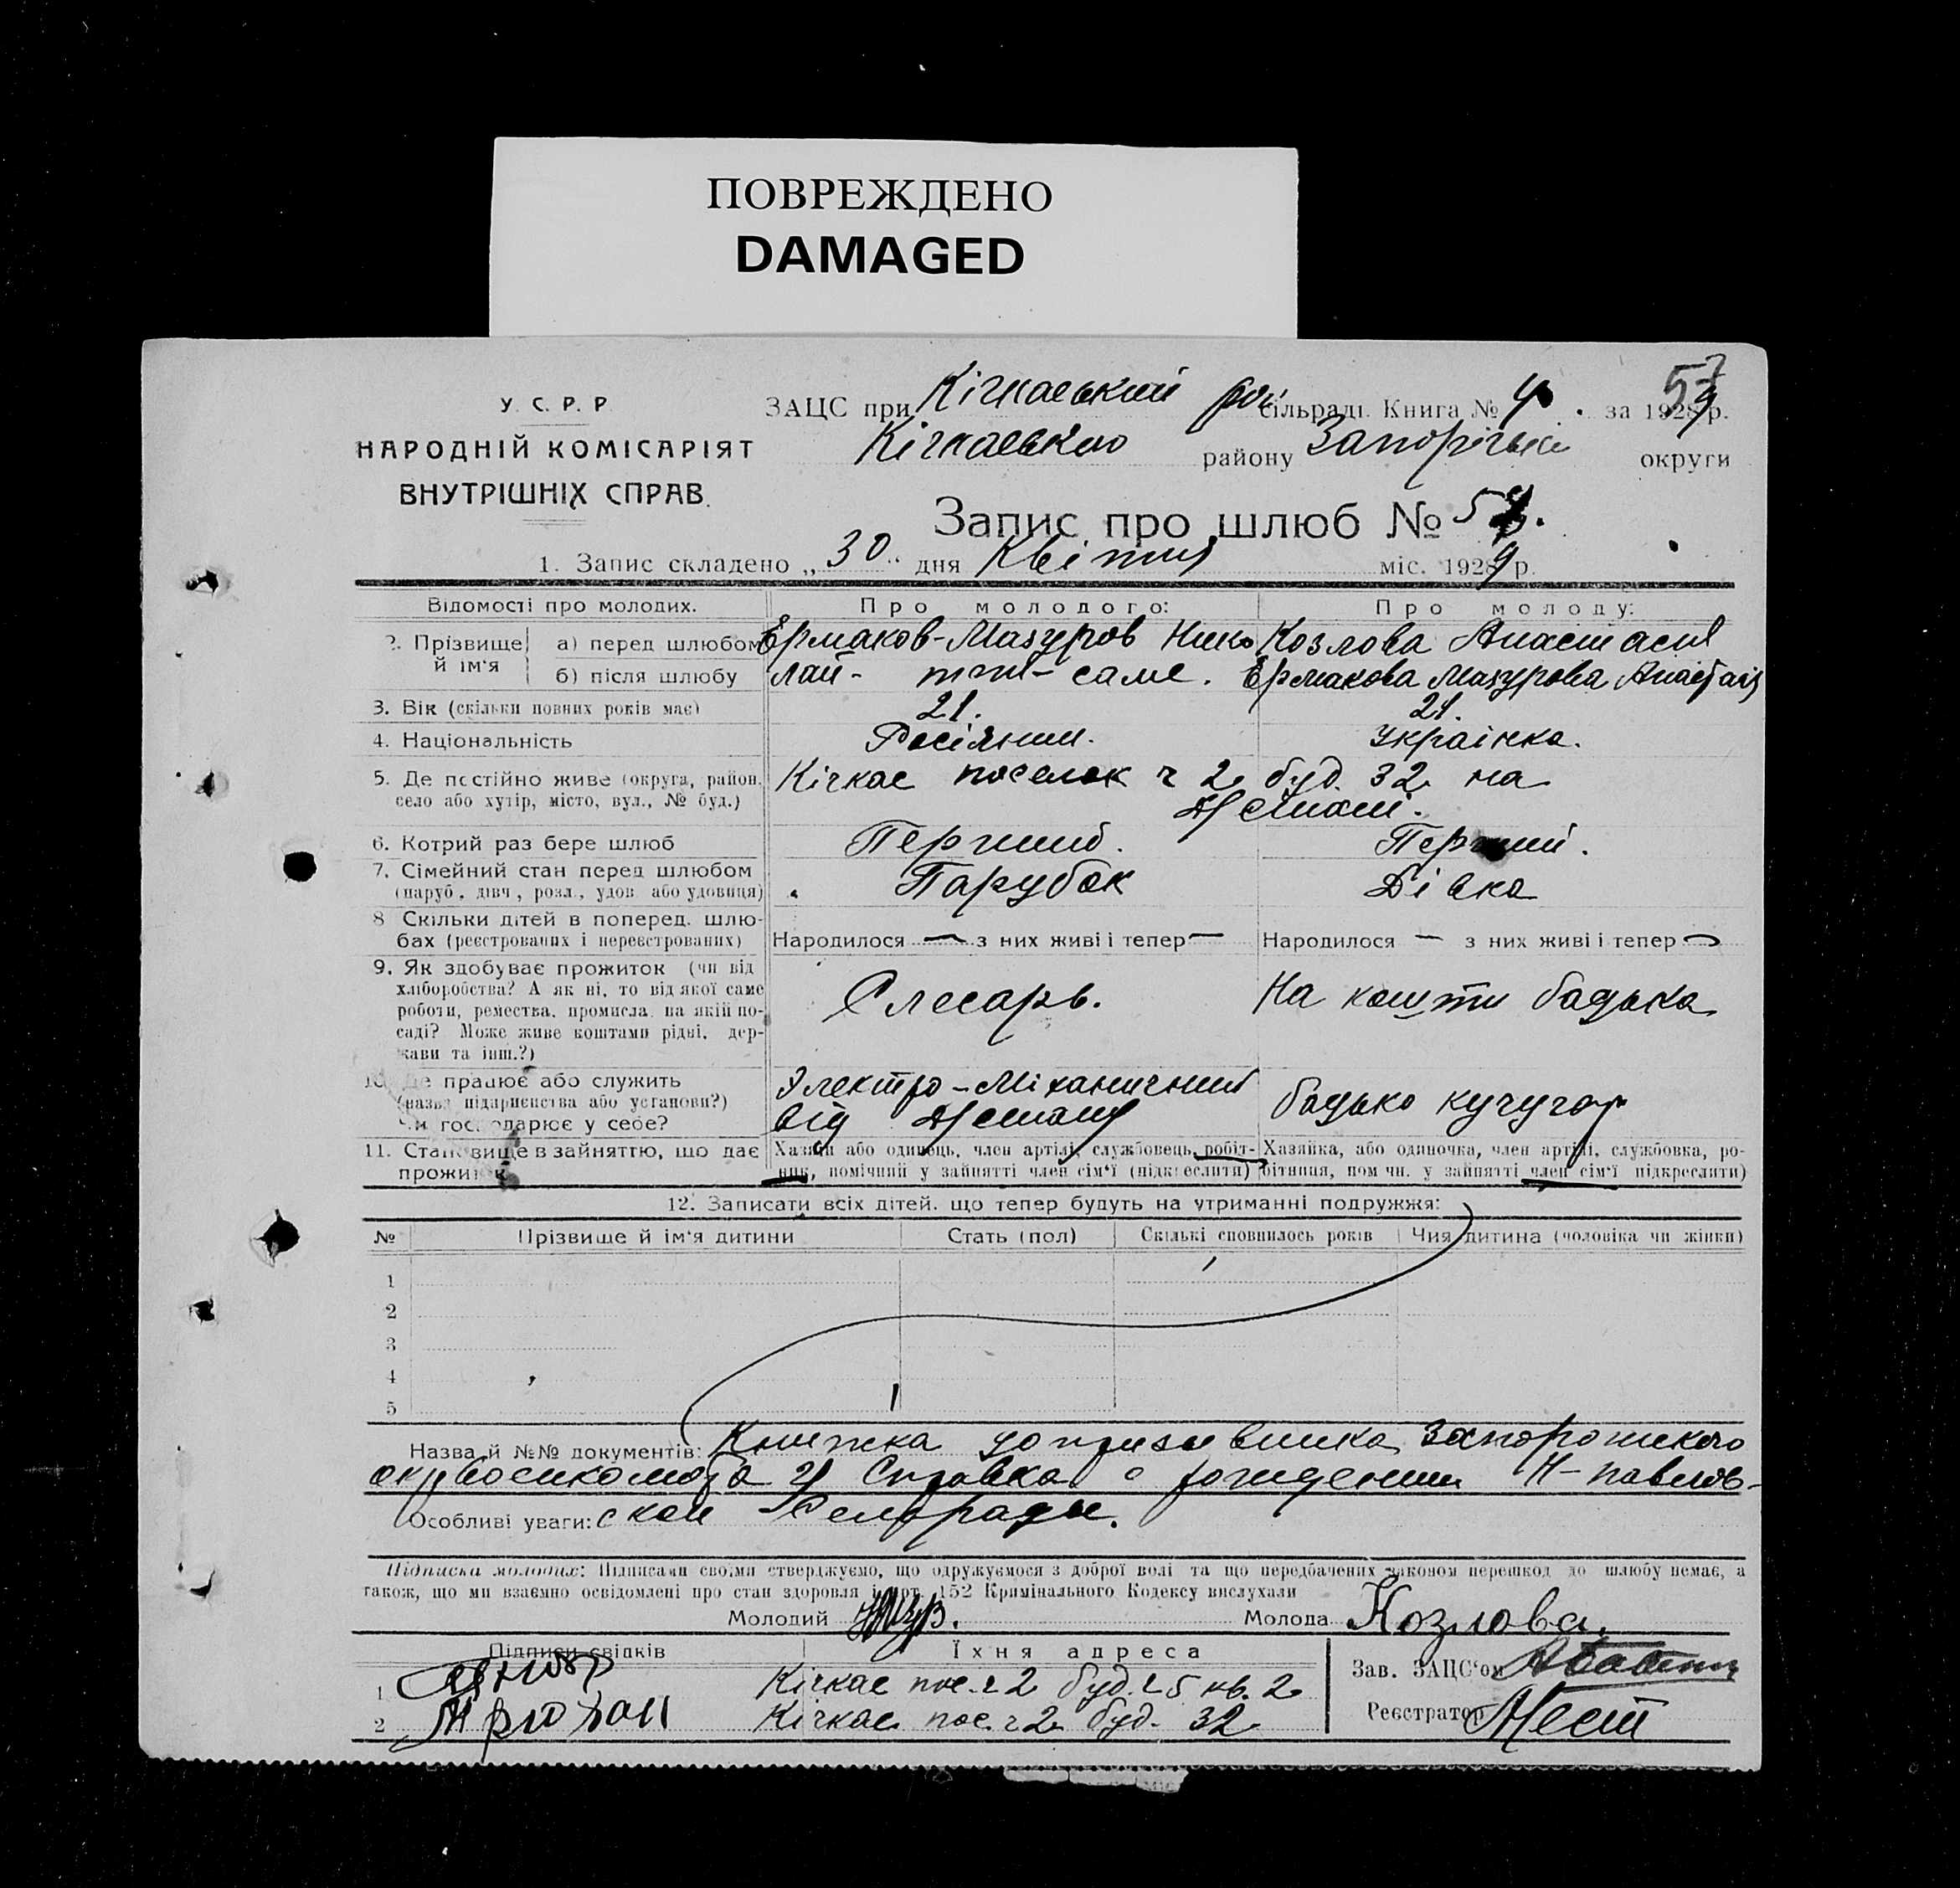 ПОВРЕЖДЕНО
DAMAGED
57
У. С. Р. Р.
НАРОДНІЙ КОМІСАРІЯТ
ВНУТРІШНІХ СПРАВ.
ЗАЦС при Кічкаський рай сільраді. Книга № за 1929 р.
Кічкаського району Запорізької округи
Запис про шлюб № 57.
1. Запис складено „ 30 “ дня Квітня міс. 1929 р.
Відомості про молодих. Про молодого: Про молоду:
2. Прізвище й ім'я а) перед шлюбом Ермаков-Мазуров Нико Козлова Анастасія
б) після шлюбу лай - теж - саме. Ермакова Мазурова Анастасія
3. Вік (скільки повних років має) 21. 21.
4. Національність Росіянин. Українка.
5. Де постійно живе (округа, район, село або хутір, місто, вул., № буд.) Кічкас поселок ч 2 буд. 32 на
6. Котрий раз бере шлюб Перший. Перший.
7. Сімейний стан перед шлюбом (паруб., дівч., розл., удов. або удовиця) Парубок Дівка
8 Скільки дітей в поперед. шлюбах (реєстрованих і нереєстрованих) Народилося — з них живі і тепер — Народилося — з них живі і тепер —
9. Як здобуває прожиток (чи від хліборобства? А як ні, то від якої саме роботи, ремества, промисла, на якій посаді? Може живе коштами рідні, держави та інш.?) Слесарь. На кошти батька
10. Де працює або служить (назва підприємства або установи?) Чи господарює у себе? Электро-Міханичний від батько кучугар
11. Становище в зайняттю, що дає прожиток Хазяїн або одинець, член артілі, службовець, робітник, помічний у зайнятті член сім'ї (підкреслити) Хазяйка, або одиночка, член артілі, службовка, робітниця, помічн. у зайнятті член сім'ї підкреслити)
12. Записати всіх дітей, що тепер будуть на утриманні подружжя:
№ Прізвище й ім'я дитини Стать (пол) Скількі сповнилось років Чия дитина (чоловіка чи жінки)
1
2
3
4
5
Назва й №№ документів: Книжка допризывника Запорожского
окрвоенкомата и Справка о рождении Н-павлов-
Особливі уваги: ской Сельрады.
Підписка молодих: Підписами своїми стверджуємо, що одружуємося з доброї волі та що передбачених законом перешкод до шлюбу немає, а
також, що ми взаємно освідомлені про стан здоровля і арт. 152 Кримінального Кодексу вислухали
Молодий Молода Козлова.
Підписи свідків Їхня адреса
1 Кічкас пос. ч 2 буд. 25 кв. 2
2 Кічкас пос. ч 2 буд. 32
Зав. ЗАЦС'ом
Реєстратор